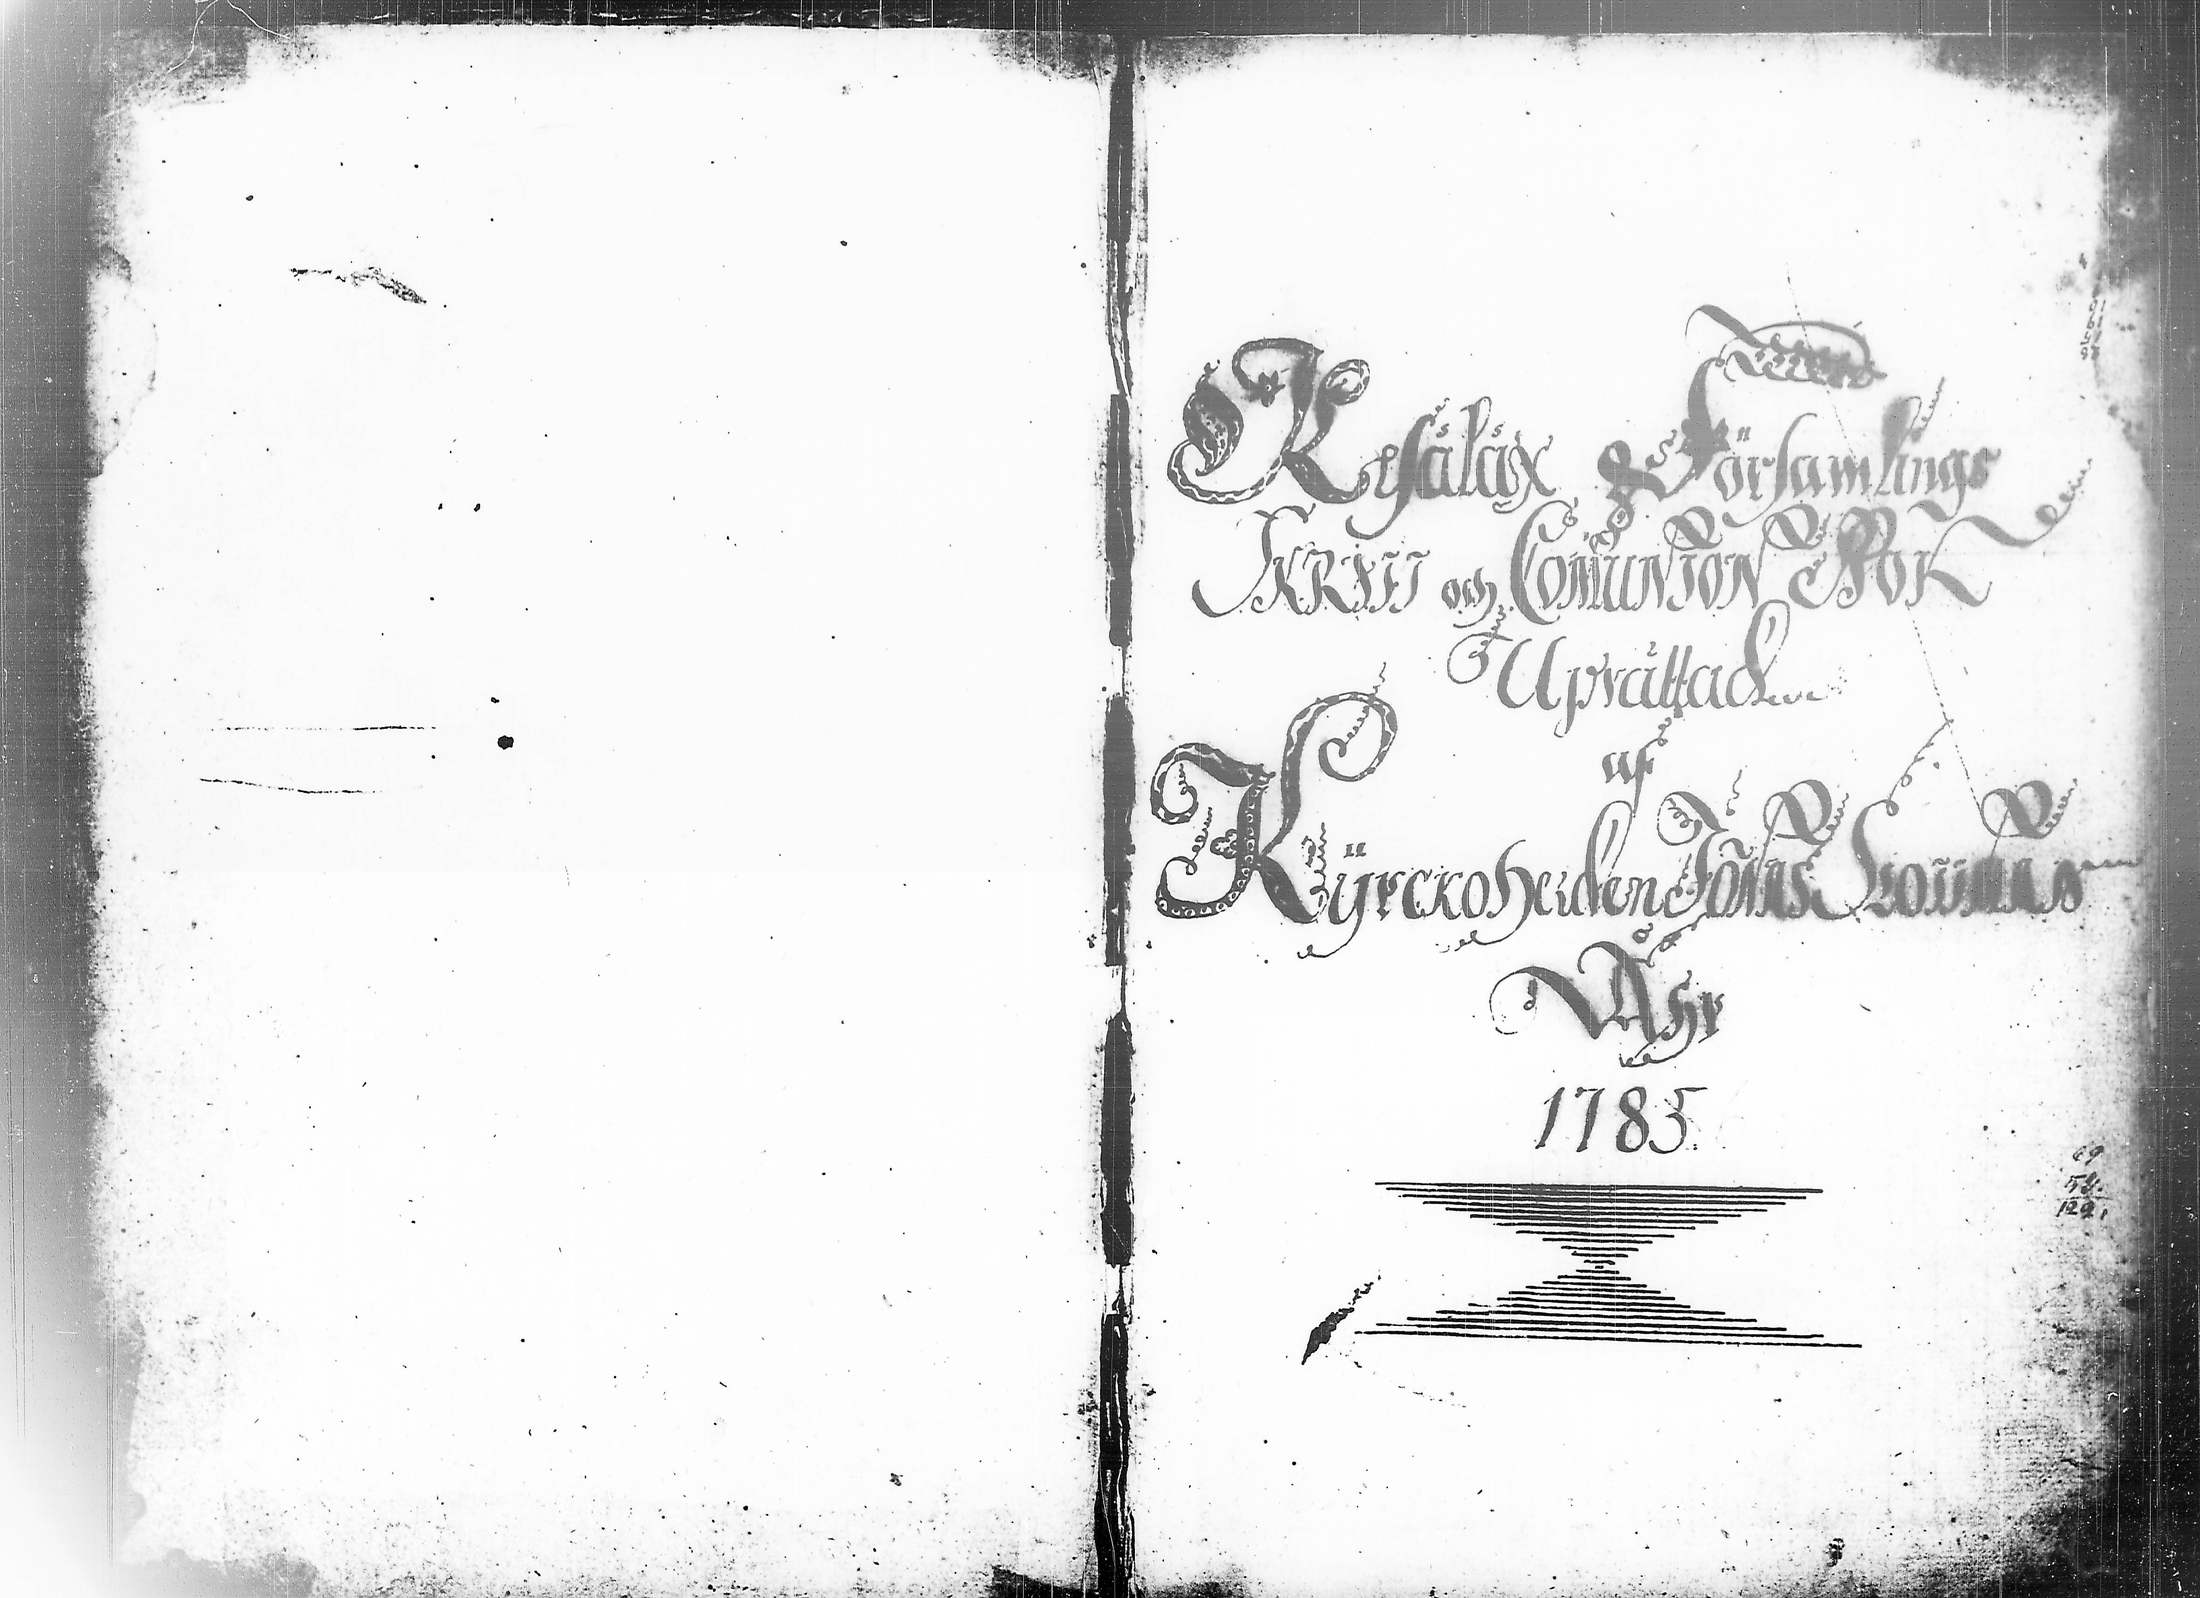 Kesälax Församlings
SKRIFT och COMUNION BOK
Uprättad
af
Kÿrckoherden Jonas
Åhr
1785
69
58.
129.